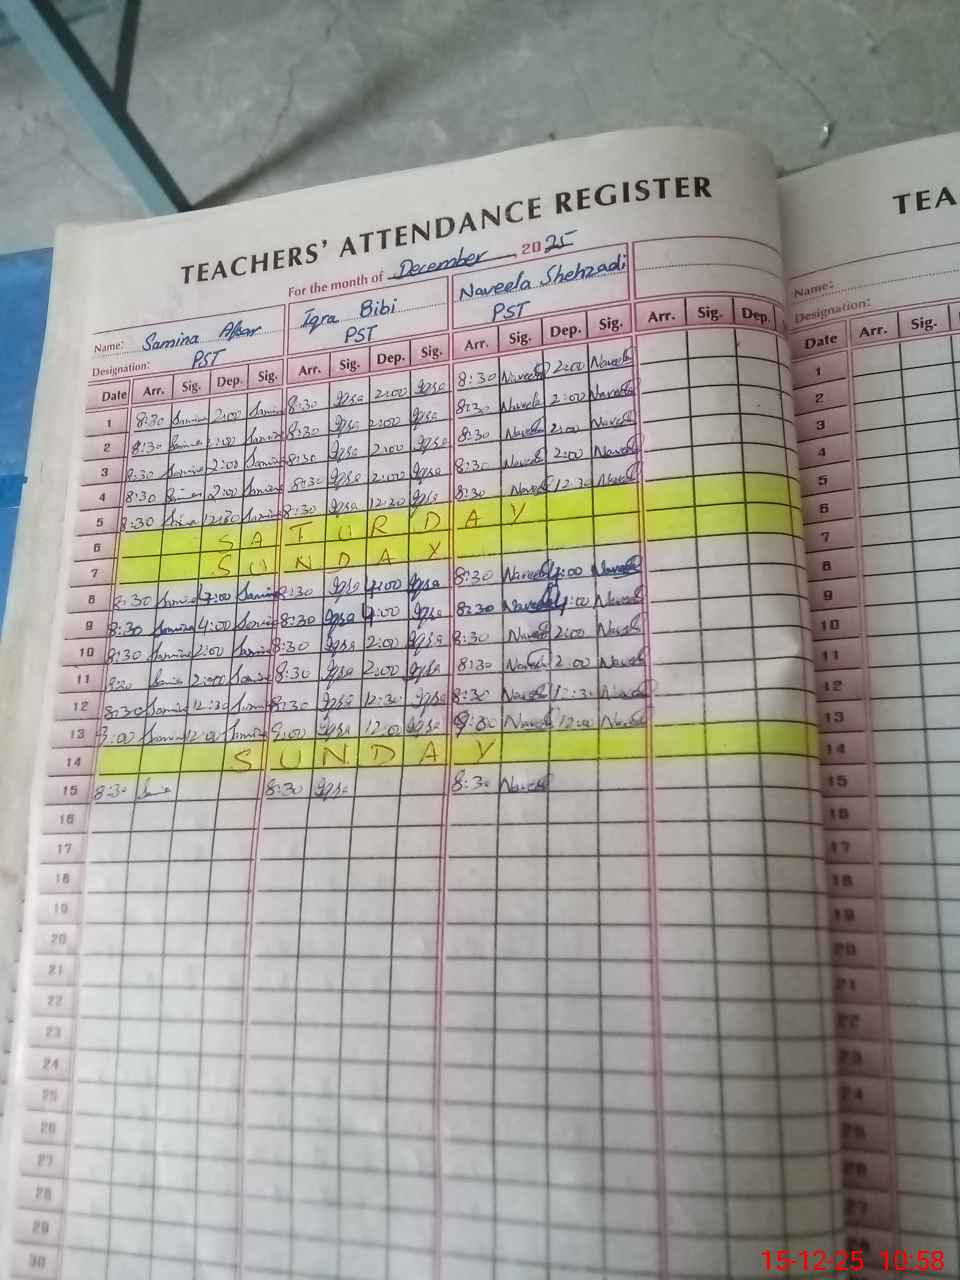 TEACHERS' ATTENDANCE REGISTER
TEA
For the month of December, 2025
Name: Samina Iqra Bibi Naveela Shehzadi
Designation: PST PST PST
Name:
Designation:
Date Arr. Sig. Dep. Sig. Arr. Sig. Dep. Sig. Arr. Sig. Dep. Sig. Arr. Sig. Dep.
Date Arr. Sig.
1 8:30 Samina 2:00 Samina 8:30 Iqra 2:00 Iqra 8:30 Naveela 2:00 Naveela
2 8:30 Samina 2:00 Samina 8:30 Iqra 2:00 Iqra 8:30 Naveela 2:00 Naveela
3 8:30 Samina 2:00 Samina 8:30 Iqra 2:00 Iqra 8:30 Naveela 2:00 Naveela
4 8:30 Samina 2:00 Samina 8:30 Iqra 2:00 Iqra 8:30 Naveela 2:00 Naveela
5 8:30 Samina 12:30 Samina 8:30 Iqra 12:30 Iqra 8:30 Naveela 12:30 Naveela
6 SATURDAY
7 SUNDAY
8 8:30 Samina 4:00 Samina 8:30 Iqra 4:00 Iqra 8:30 Naveela 4:00 Naveela
9 8:30 Samina 4:00 Samina 8:30 Iqra 4:00 Iqra 8:30 Naveela 4:00 Naveela
10 8:30 Samina 2:00 Samina 8:30 Iqra 2:00 Iqra 8:30 Naveela 2:00 Naveela
11 8:30 Samina 2:00 Samina 8:30 Iqra 2:00 Iqra 8:30 Naveela 2:00 Naveela
12 8:30 Samina 12:30 Samina 8:30 Iqra 12:30 Iqra 8:30 Naveela 12:30 Naveela
13 9:00 Samina 12:00 Samina 9:00 Iqra 12:00 Iqra 9:00 Naveela 12:00 Naveela
14 SUNDAY
15 8:30 Samina 8:30 Iqra 8:30 Naveela
16
17
18
19
20
21
22
23
24
25
26
27
28
29
30
1
2
3
4
5
6
7
8
9
10
11
12
13
14
15
16
17
18
19
20
21
22
23
24
25
26
27
15-12-25 10:58